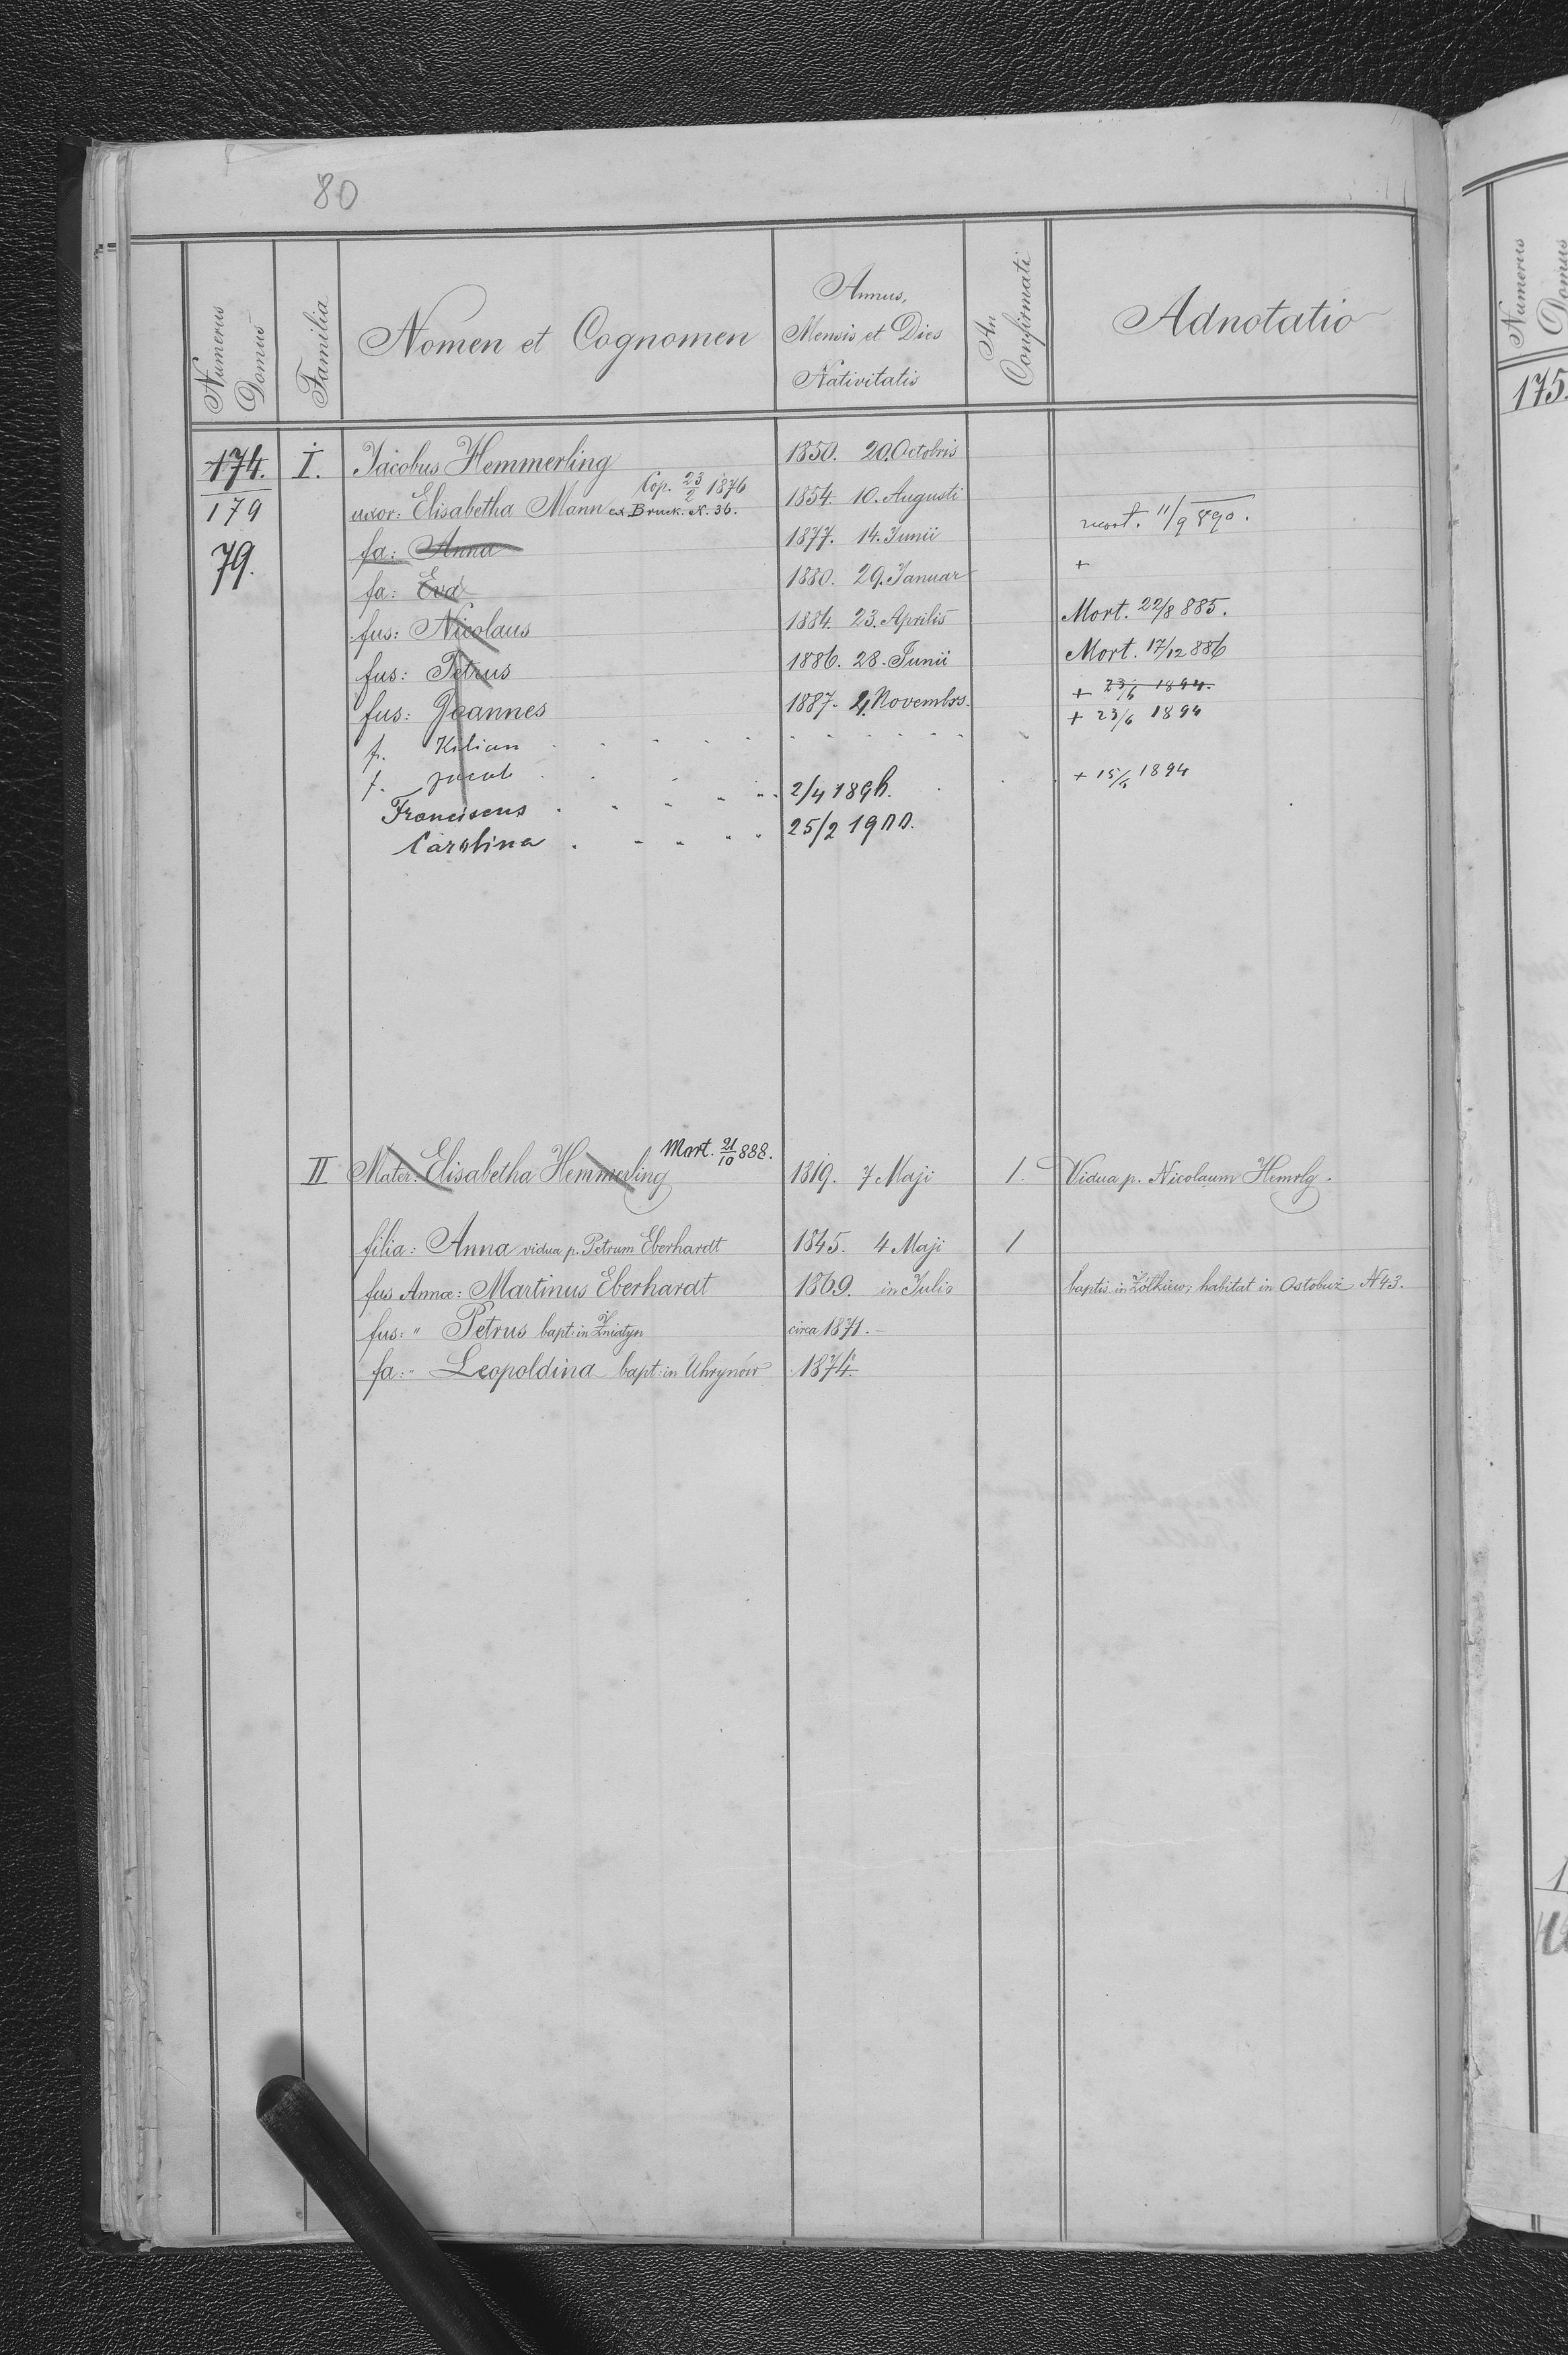 80
Numerus Domus
Familia
Nomen et Cognomen
Annus, Mensis et Dies Nativitatis
An Confirmati
Adnotatio
174. I. Jacobus Hemmerling 1850. 20. Octobris
Cop. 23/2 1876
179 uxor: Elisabetha Mann ex Bruck. N. 36. 1854. 10. Augusti
79. fa: Anna 1877. 14. Junii mort. 11/9 890.
fa: Eva 1880. 29. Januar +
fus: Nicolaus 1884. 23. Aprilis Mort. 22/8 885.
fus: Petrus 1886. 28. Junii Mort. 17/12 886
fus: Joannes 1887. 4. Novembrs. + 23/6 1894.
f. Kilian + 23/6 1894
f. Jacob + 15/6 1894
Franciscus 2/4 189
Carolina 25/2 1900.
Mort. 21/10 888.
II Mater: Elisabetha Hemmerling 1819. 7 Maji 1. Vidua p. Nicolaum Hemrlg.
filia: Anna vidua p. Petrum Eberhardt 1845. 4 Maji 1
fus Annæ: Martinus Eberhardt 1869. in Julio baptis. in Żółkiew; habitat in Ostobuż N 43.
fus: " Petrus bapt: in Żniatyn circa 1871. –
fa: " Leopoldina bapt: in Uhrynów 1874.
Numerus Domus
175.